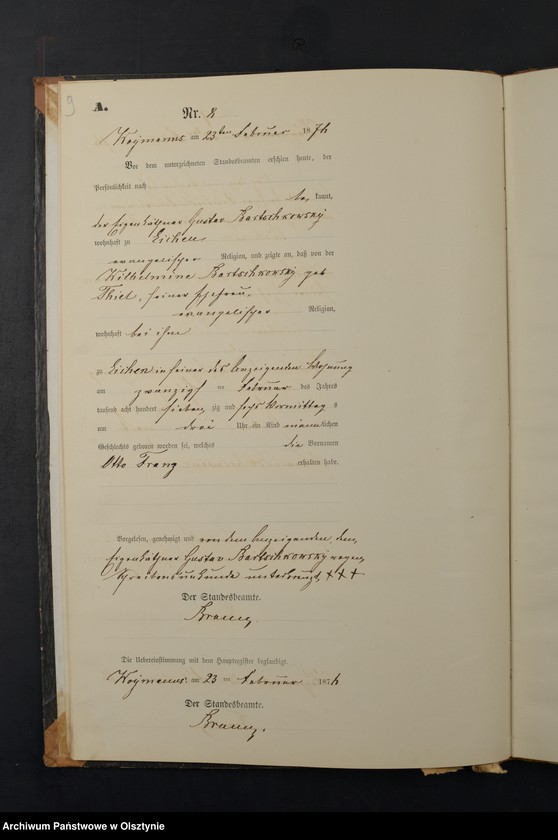 9
A.
Nr. 8
am 23ten Februar 1876
Vor dem unterzeichneten Standesbeamten erschien heute, der
Persönlichkeit nach
be kannt,
der Eigenkäthner Gustav Bartschkowsky
wohnhaft zu Eichen
evangelischer Religion, und zeigte an, daß von der
Wilhelmine Bartschkowsky geb
Thiel, seiner Ehefrau,
evangelischer Religion,
wohnhaft bei ihm
zu Eichen in seiner des Anzeigenden Wohnung
am zwanzigsten Februar des Jahres
tausend acht hundert sieben zig und sechs Vormittag s
um drei Uhr ein Kind männlichen
Geschlechts geboren worden sei, welches die Vornamen
Otto Franz erhalten habe.
Vorgelesen, genehmigt und von dem Anzeigenden, dem
Eigenkäthner Gustav Bartschkowsky wegen
Schreibensunkunde unterkreuzt, + + +
Der Standesbeamte.
Die Uebereinstimmung mit dem Hauptregister beglaubigt.
am 23 ten Februar 1876
Der Standesbeamte.
Archiwum Państwowe w Olsztynie